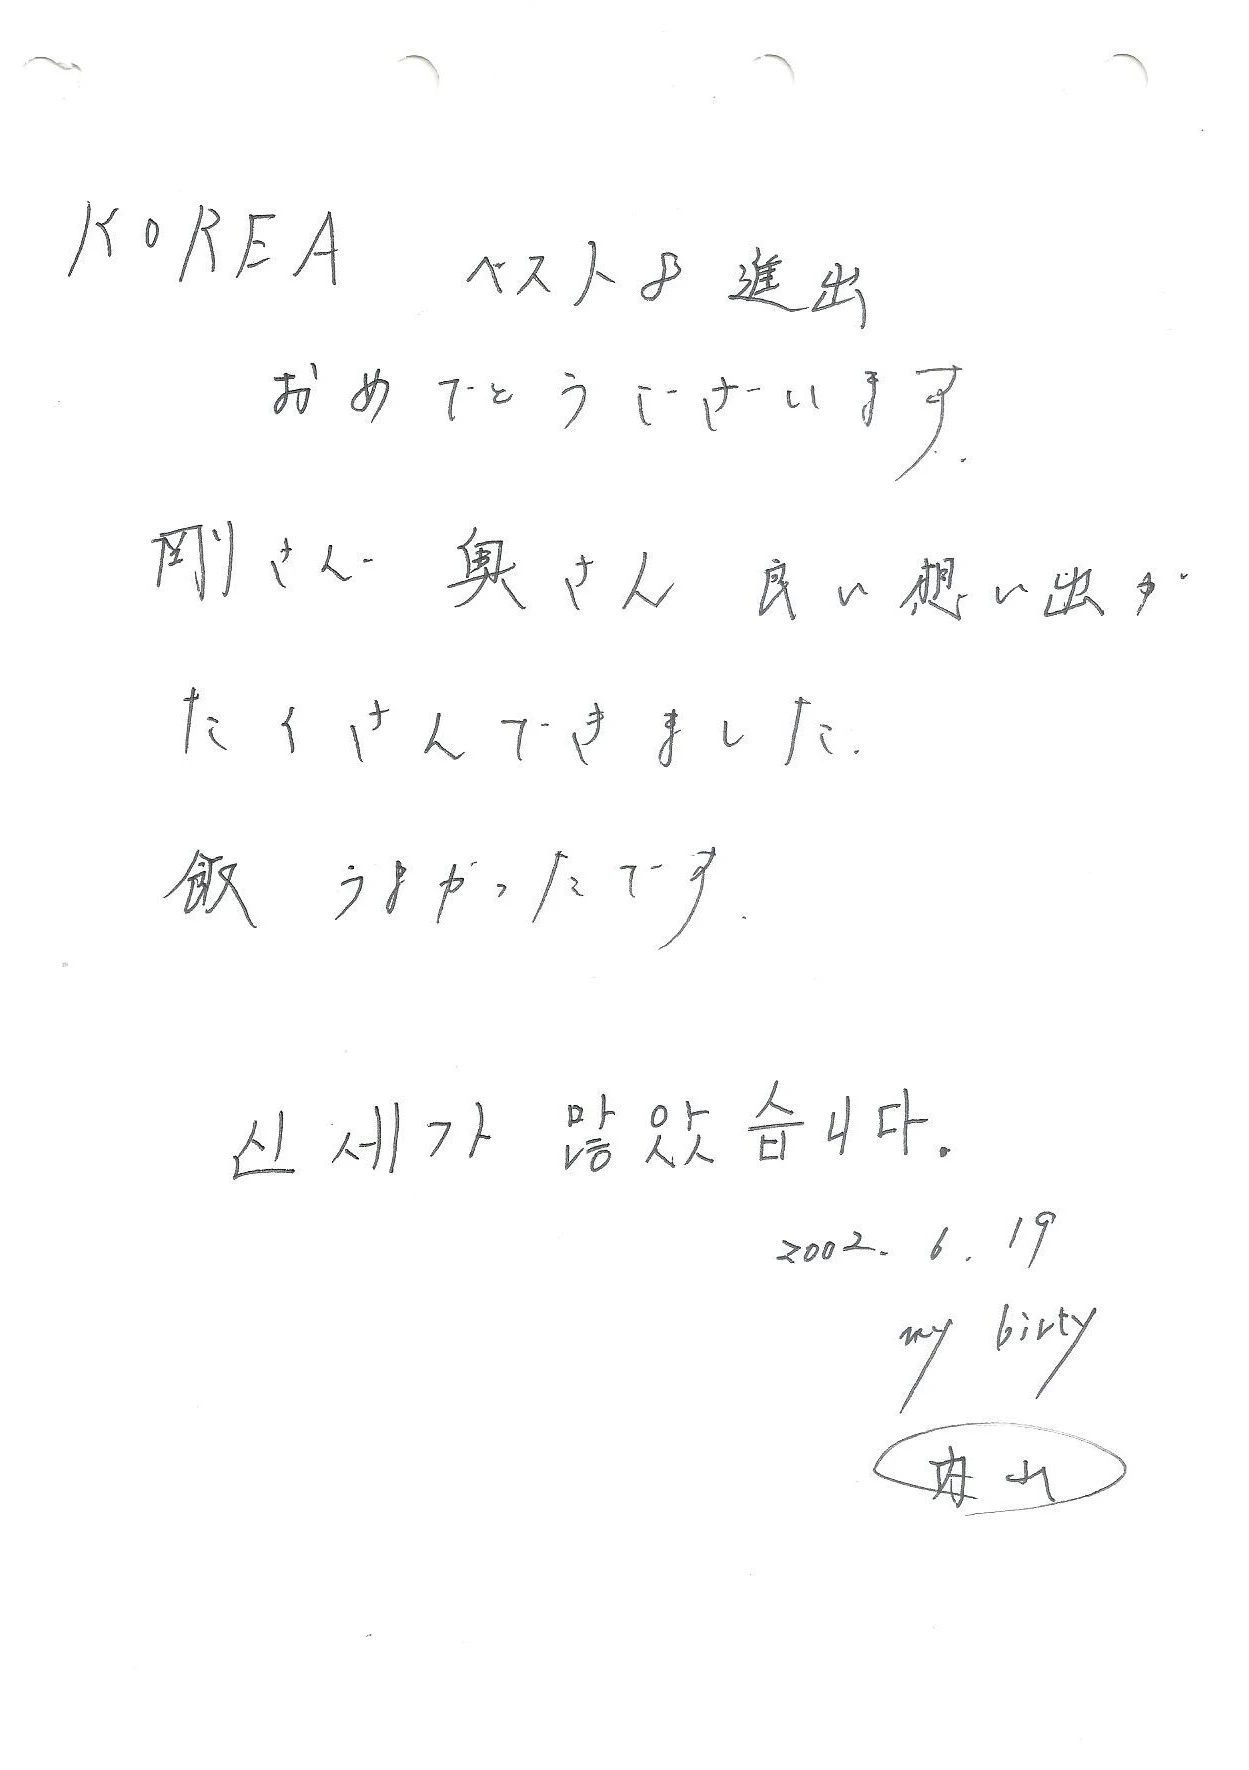 KOREA ベスト8 進出
おめでとうございます.
剛さん 奥さん 良い想い出が
たくさんできました.
飯 うまかったです.
신세가 많았습니다.
2002. 6. 19
my birty
内山